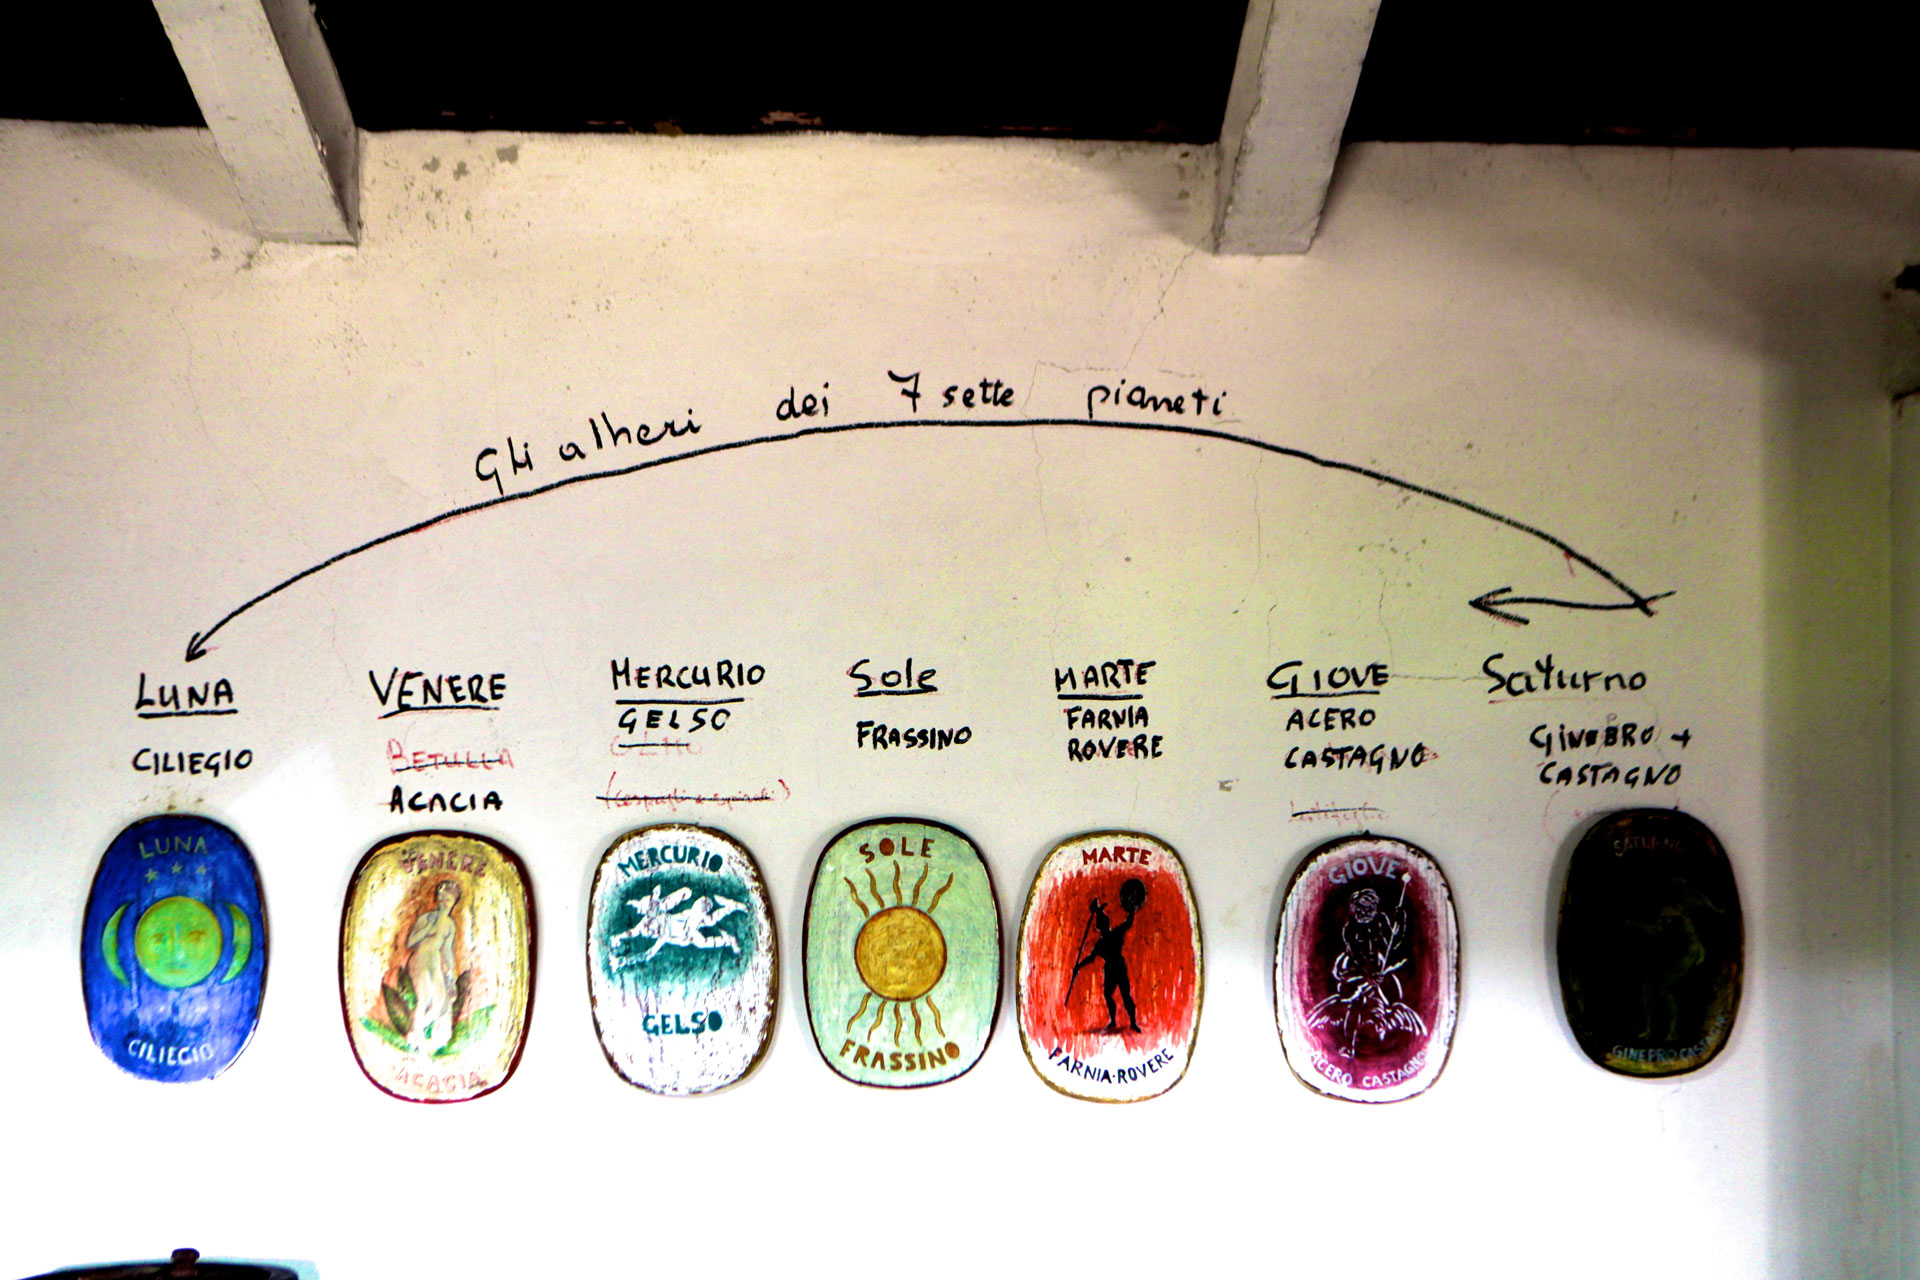 Gli alberi dei 7 sette pianeti
LUNA
CILIEGIO
VENERE
BETULLA
ACACIA
MERCURIO
GELSO
Sole
FRASSINO
MARTE
FARNIA
ROVERE
GIOVE
ACERO
CASTAGNO
Saturno
GINEBRO +
CASTAGNO
LUNA
CILIEGIO
VENERE
ACACIA
MERCURIO
GELSO
SOLE
FRASSINO
MARTE
FARNIA·ROVERE
GIOVE
ACERO CASTAGNO
SATURNO
GINEPRO CASTAGNO